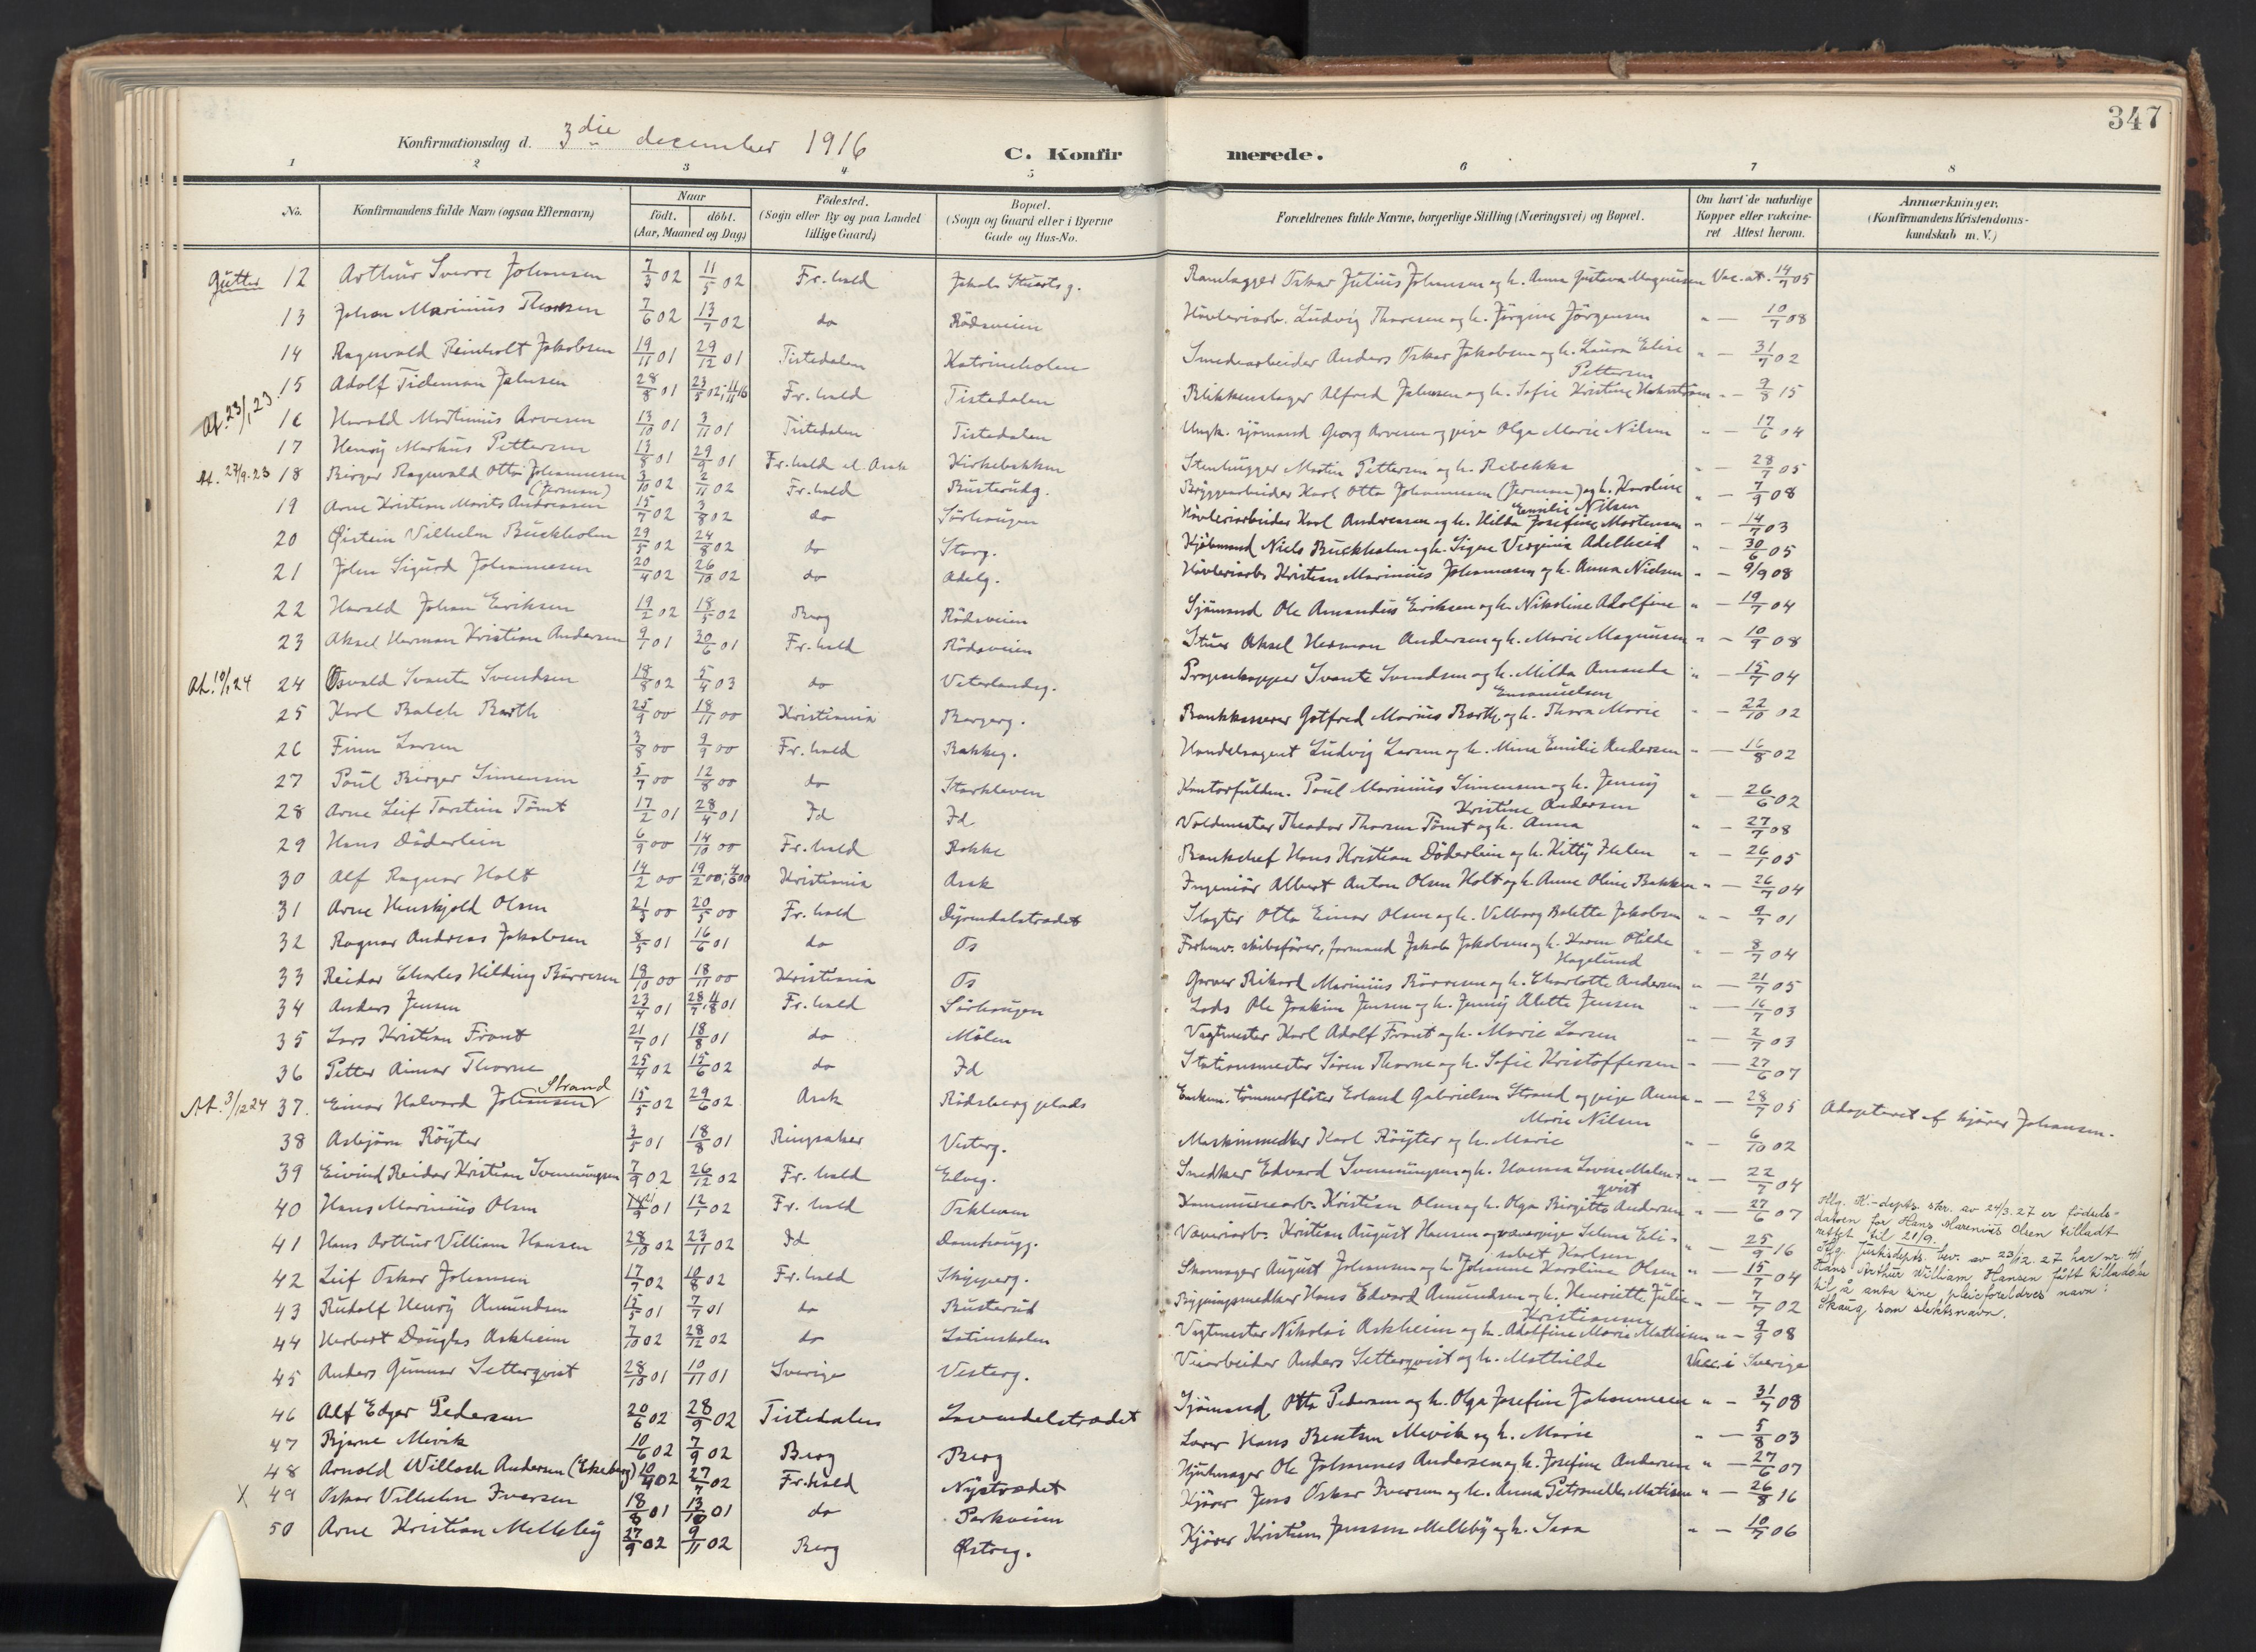 347
Konfirmationsdag d. 3die december 1916
C. Konfirmerede.
1 2 3 4 5 6 7 8
No. Konfirmandens fulde Navn (ogsaa Efternavn) Naar født. døbt. (Aar, Maaned og Dag) Fødested. (Sogn eller By og paa Landet tillige Gaard) Bopæl. (Sogn og Gaard eller i Byerne Gade og Hus-No. Forældrenes fulde Navne, borgerlige Stilling (Næringsvei) og Bopæl. Om havt de naturlige Kopper eller vakcineret Attest herom. Anmærkninger. (Konfirmandens Kristendomskundskab m. V.)
Gutter 12 Arthur Sverre Johansen 7/3 02 11/5 02 Fr.hald Jakob Stuartsg. Oskar Julius Johansen og h. Anna Gustava Magnussen Vac. at. 14/7 05
13 Johan Marinius Thoresen 7/6 02 13/7 02 do Rødsveien Høvleriarb. Ludvig Thoresen og h. Jørgine Jørgensen " — 10/7 08
14 Ragnvald Reinholt Jakobsen 19/11 01 29/12 01 Tistedalen Katrineholm Smedearbeider Anders Oskar Jakobsen og h. Laura Elise Pettersen " — 31/7 02
At. 23/1 23. 15 Adolf Tideman Johnsen 28/8 01 23/5 02; 11/11 16 Fr.hald Tistedalen Blikkenslager Alfred Johnsen og h. Sofie Kristine " — 9/8 15
16 Harald Martinius Arvesen 13/10 01 3/11 01 Tistedalen Tistedalen Ungk. sjømand Georg Arvesen og pige Olga Marie Nilsen " — 17/6 04
17 Henry Markus Pettersen 13/8 01 29/9 01 Fr.hald el. Asak Kirkebakken Stenhugger Martin Pettersen og h. Rebekka " — 28/7 05
At. 27/9.23 18 Birger Ragnvald Otto Johannesen (Jerman) 3/10 02 2/11 02 Fr.hald Busterudg. Bryggearbeider Karl Otto Johannesen (Jerman) og h. Karoline Emilie Nilsen " — 7/9 08
19 Arne Kristian Marits Andreassen 15/7 02 3/8 02 do Sørhaugen Høvleriarbeider Karl Andreassen og h. Hilda Josefine Mortensen " — 14/7 03
20 Øistein Vilhelm Buckholm 29/5 02 24/8 02 do Storg. Kjøbmand Niels Buckholm og h. Signe Virginia Adelheid " — 30/6 05
21 John Sigurd Johannesen 20/4 02 26/10 02 do Adelg. Høvleriarb. Kristian Marinius Johannesen og h. Anna Nielsen " — 9/9 08
22 Harald Johan Eriksen 19/2 02 18/5 02 Berg Rødsveien Sjømand Ole Amandus Eriksen og h. Nikoline Adolfine " — 19/7 04
23 Aksel Herman Kristian Andersen 9/1 01 30/6 01 Fr.hald Rødsveien Stuer Aksel Herman Andersen og h. Marie Magnusen " — 10/9 08
At. 10/1 24 24 Osvald Svante Svendsen 18/8 02 5/4 03 do Veterlandsg. Svante Svendsen og h. Milda Amanda Emanuelsen " — 15/7 04
25 Karl Balch Barth 25/9 00 18/11 00 Kristiania Borgerg. Bankkasserer Gotfred Marius Barth og h. Thora Marie " — 22/10 02
26 Finn Larsen 3/8 00 9/9 00 Fr.hald Bakkeg. Handelsagent Ludvig Larsen og h. Mina Emilie Andersen " — 16/8 02
27 Poul Birger Simensen 5/7 00 12/8 00 do Storkleven Kontorfuldm. Poul Marinius Simensen og h. Jenny Kristine Andersen " — 26/6 02
28 Arne Leif Torstein Tømt 17/2 01 28/4 01 Id Id Voldmester Theodor Thorsen Tømt og h. Anna " — 27/7 08
29 Hans Døderlein 6/9 00 14/10 00 Fr.hald Rokke Bankchef Hans Kristian Døderlein og h. Kitty Helen " — 26/1 05
30 Alf Ragnar Holt 14/2 00 19/2 00; 4/6 00 Kristiania Asak Ingeniør Albert Anton Olsen Holt og h. Anne Oline Bakken " — 26/7 04
31 Arne Henskjold Olsen 21/3 00 20/5 00 Fr.hald Dyrendalstrædet Slagter Otto Einar Olsen og h. Valborg Bolette Jakobsen " — 9/7 01
32 Ragnar Andreas Jakobsen 8/5 01 16/6 01 do Os Frhenv. skibsfører, formand Jakob Jakobsen og h. Karen Otilde Hagelund " — 8/7 04
33 Reidar Charles Hilding Børresen 18/10 00 18/11 00 Kristiania Os Garver Rikard Marinius Børresen og h. Charlotte Andersen " — 21/7 05
34 Anders Jensen 23/4 01 28/7, 11/8 01 Fr.hald Sørhaugen Lods Ole Joakim Jensen og h. Jenny Alette Jensen " — 16/7 03
35 Lars Kristian Front 21/7 01 18/8 01 do Mølen Vagtmester Karl Adolf Front og h. Marie Larsen " — 2/7 03
36 Petter Aimar Thorne 25/4 02 15/6 02 do Id Stationsmester Søren Thorne og h. Sofie Kristoffersen " — 27/6 07
At. 3/12 24 37. Einar Halvard Johansen Strand 15/5 02 29/6 02 Asak Rødsberg plads Enkem. tømmerfløter Erland Gabrielsen Strand og pige Anna Marie Nilsen " — 28/7 05 Adopteret af kjører Johansen.
38 Asbjørn Røyter 3/5 01 18/8 01 Ringsaker Vesterg. Maskinsnedker Karl Røyter og h. Marie " — 6/10 02
39 Eivind Reidar Kristian Svenningsen 7/9 02 26/12 02 Fr.hald Elveg. Snedker Edvard Svenningsen og h. Hanna Lovise Malmqvist " — 22/7 04
40 Hans Marinius Olsen 9 01 12/1 02 Fr.hald Oskleven Kommunearb. Kristian Olsen og h. Olga Birgitte Andersen " — 27/6 07 Iflg. K.-depts. skr. av 24/3. 27 er fødselsdatoen for Hans Marenius Olsen tilladt rettet til 21/9.
41 Hans Arthur Villiam Hansen 28/10 02 23/11 02 Id Damhaugg. Væveriarb. Kristian August Hansen og væverpige Selma Elisabet Karlsen " — 25/9 16 Iflg. Justisdepts. bev. av 23/12. 27 har nr 41 Hans Arthur William Hansen fått tilladelse til å anta sine pleieforeldres navn: Skaug som slektsnavn.
42 Leif Oskar Johansen 17/7 02 10/8 02 Fr.hald Skipperg. Skomager August Johansen og h. Johanne Karoline Olsen " — 15/7 04
43 Rudolf Henry Amundsen 15/5 01 7/7 01 do Busterud Bygningssnedker Hans Edvard Amundsen og h. Henriette Julie Kristiansen " — 7/7 02
44 Herbert Douglas Askheim 7/10 02 28/12 02 do Latinskolen Vagtmester Nikolai Askheim og h. Adolfine Marie Mathisen " — 9/9 08
45 Anders Gunnar Setterqvist 28/10 01 10/11 01 Sverige Vesterg. Veiarbeider Anders Setterqvist og h. Mathilde Vacc. i Sverige
46 Alf Edgar Pedersen 20/6 02 28/9 02 Tistedalen Lavendelstrædet Sjømand Otto Pedersen og h. Olga Josefine Johannesen " — 31/7 08
47 Bjarne Mevik 10/6 02 7/9 02 Berg Berg Lærer Hans Bentsen Mevik og h. Marie " — 5/8 03
48 Arnold Willoch Andersen (Ekeberg) 10/4 02 27/7 02 Fr.hald Nystrædet Hjulmager Ole Johannes Andersen og h. Josefine Andersen " — 27/6 07
X 49 Oskar Vilhelm Iversen 18/8 01 13/10 01 do Parkveien Kjører Jens Oskar Iversen og h. Anna Petronelle Matisen " — 26/8 16
50 Arne Kristian Melleby 27/9 02 9/11 02 Berg Østreg. Kjører Kristian Jensen Melleby og h. Sara " — 10/7 06